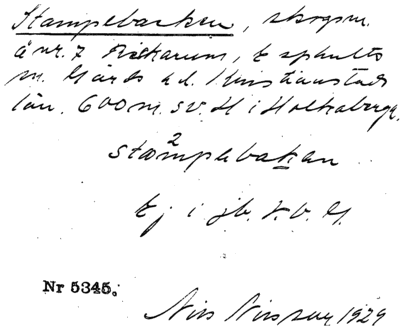 Stampebacken, skogsm.
å nr. 7 Rickarum, Ephults
sn. Gärds hd. Kristianstads
län. 600 m. sv. H i Holkaberga.
sta²mpəbakan
Ej i jb. K. O. G.
Nr 5345.
Nils Nilsson 1929